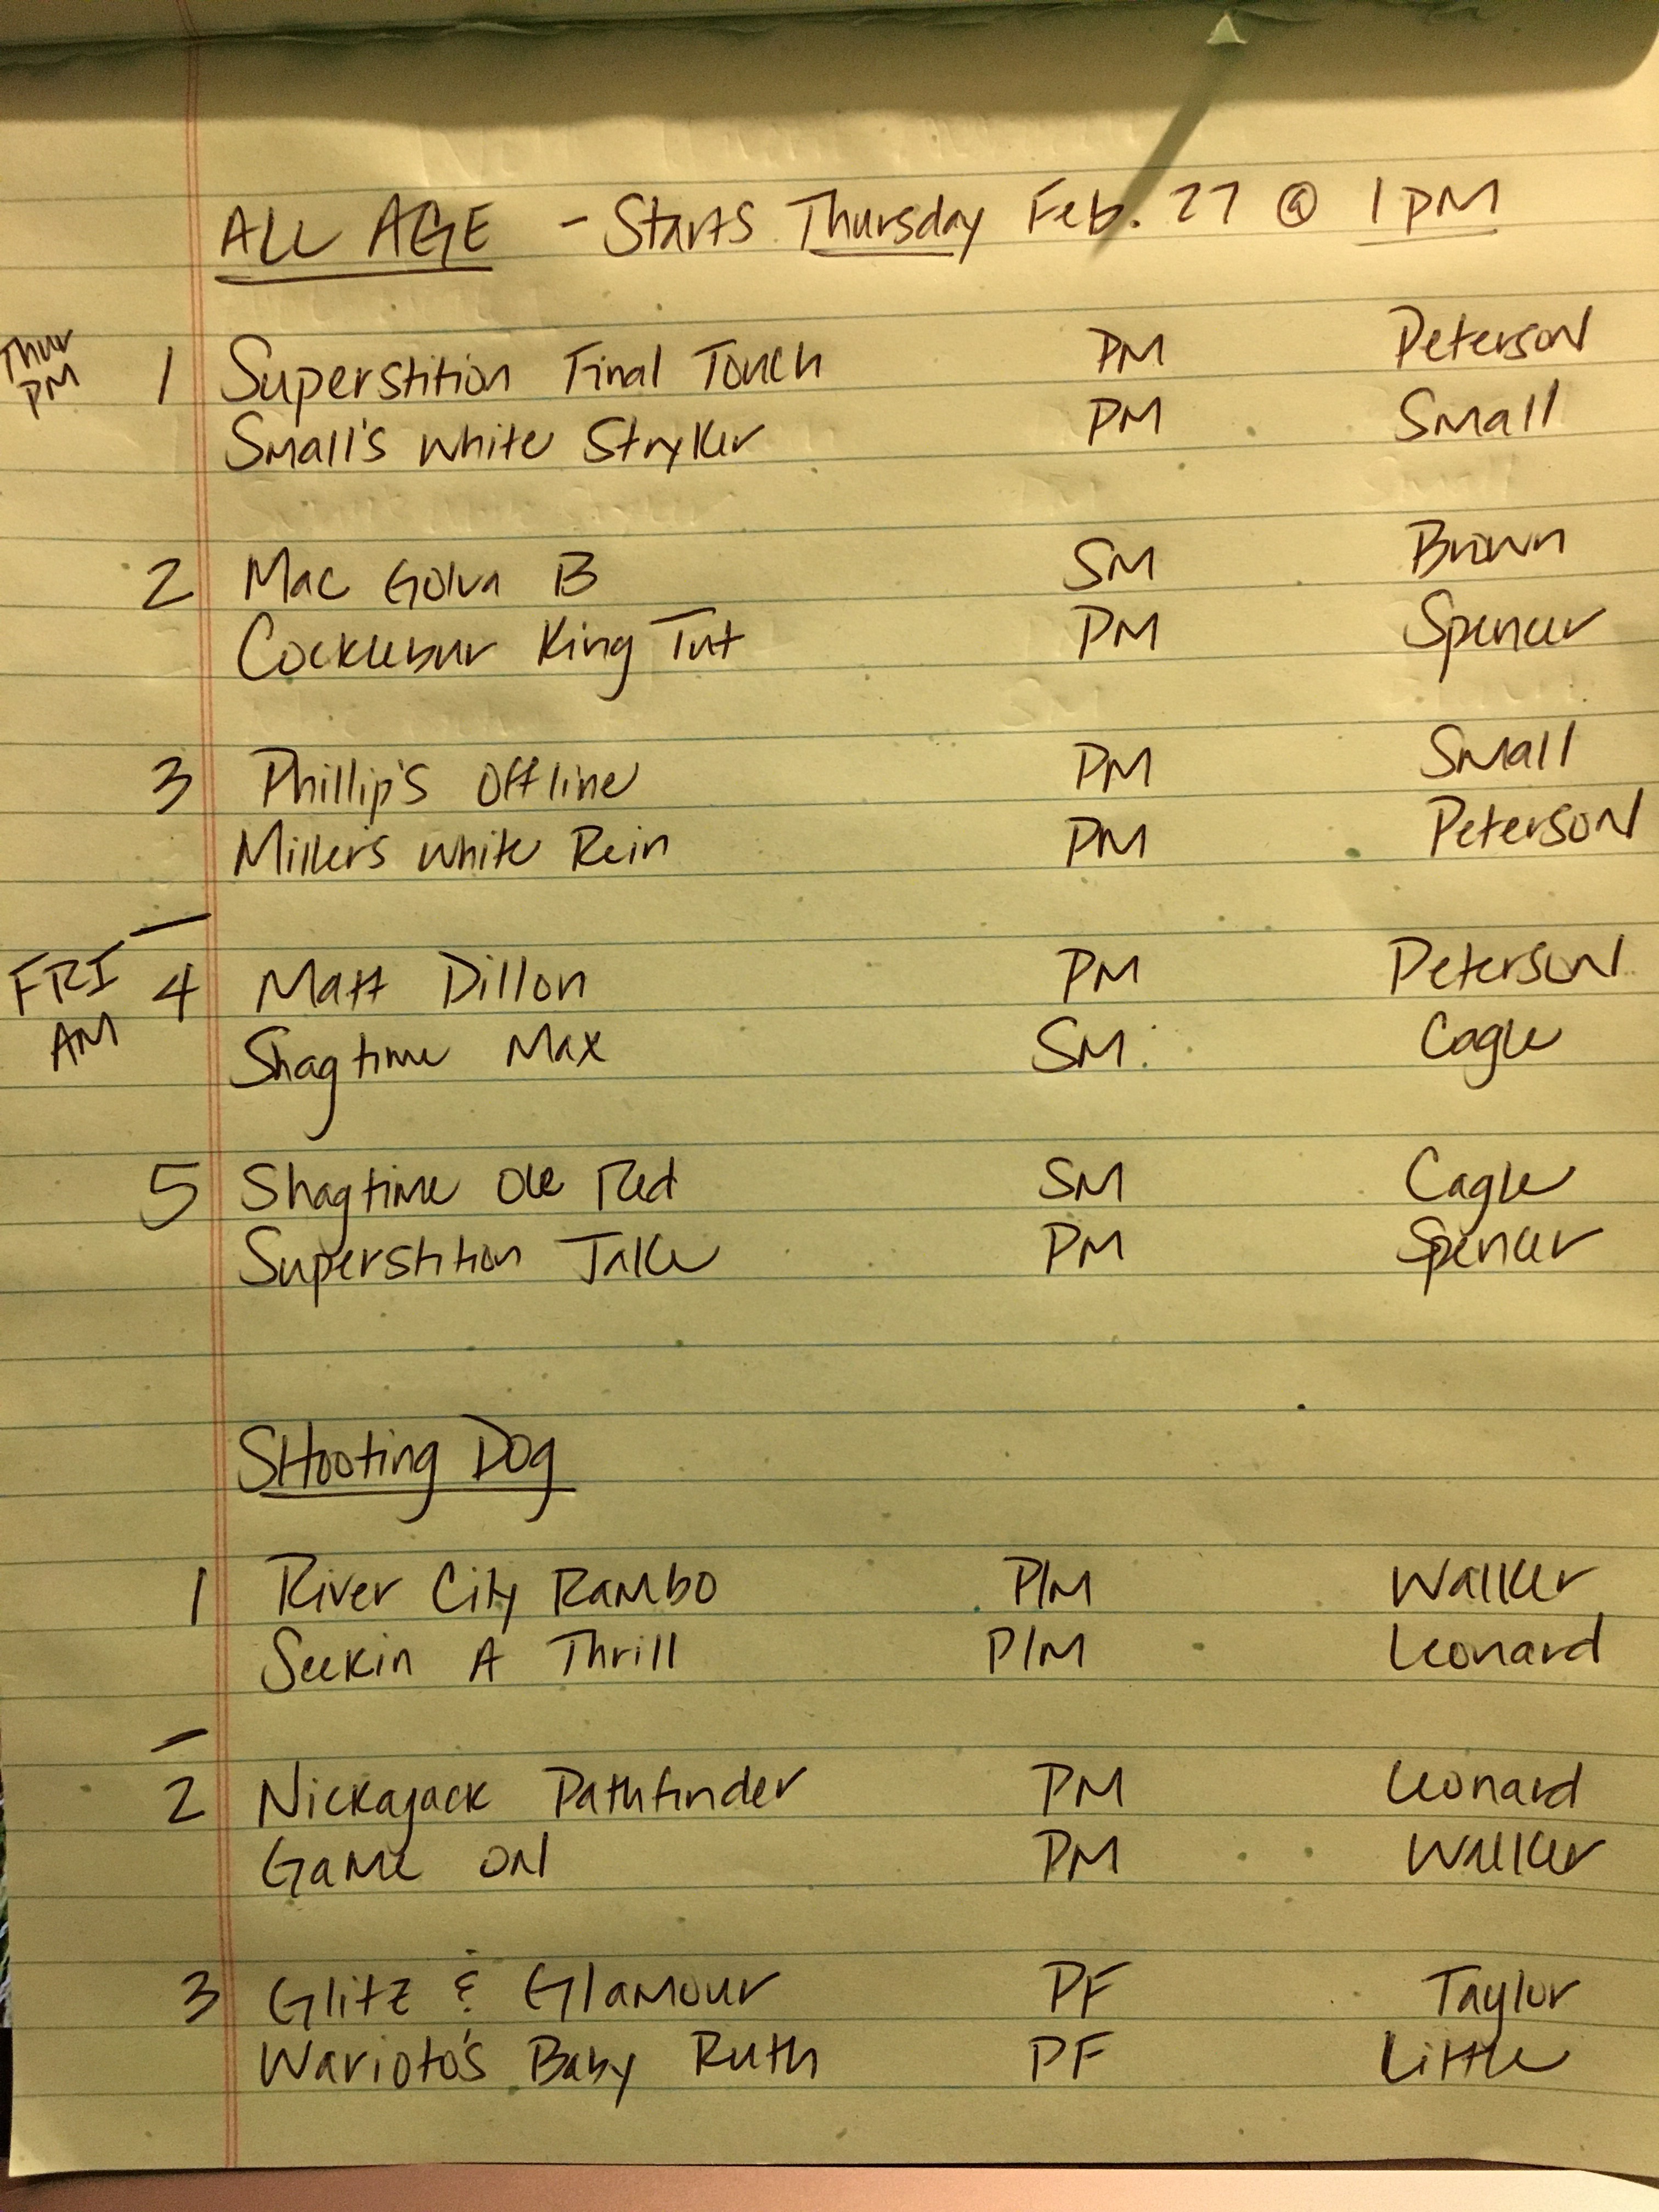 ALL AGE - Starts Thursday Feb. 27 @ 1 PM
Thur PM 1 Superstition Final Touch PM Peterson
Small's White Stryker PM Small
2 Mac Golva B SM Brown
Cocklebur King Tut PM Spencer
3 Phillip's Offline PM Small
Miller's White Rein PM Peterson
FRI AM 4 Matt Dillon PM Peterson
Shagtime Max SM Cagle
5 Shagtime Ole Red SM Cagle
Superstition Jake PM Spencer
SHooting Dog
1 River City Rambo P/M Walker
Seekin A Thrill P/M Leonard
2 Nickajack Pathfinder PM Leonard
Game ON PM Walker
3 Glitz & Glamour PF Taylor
Warioto's Baby Ruth PF Little